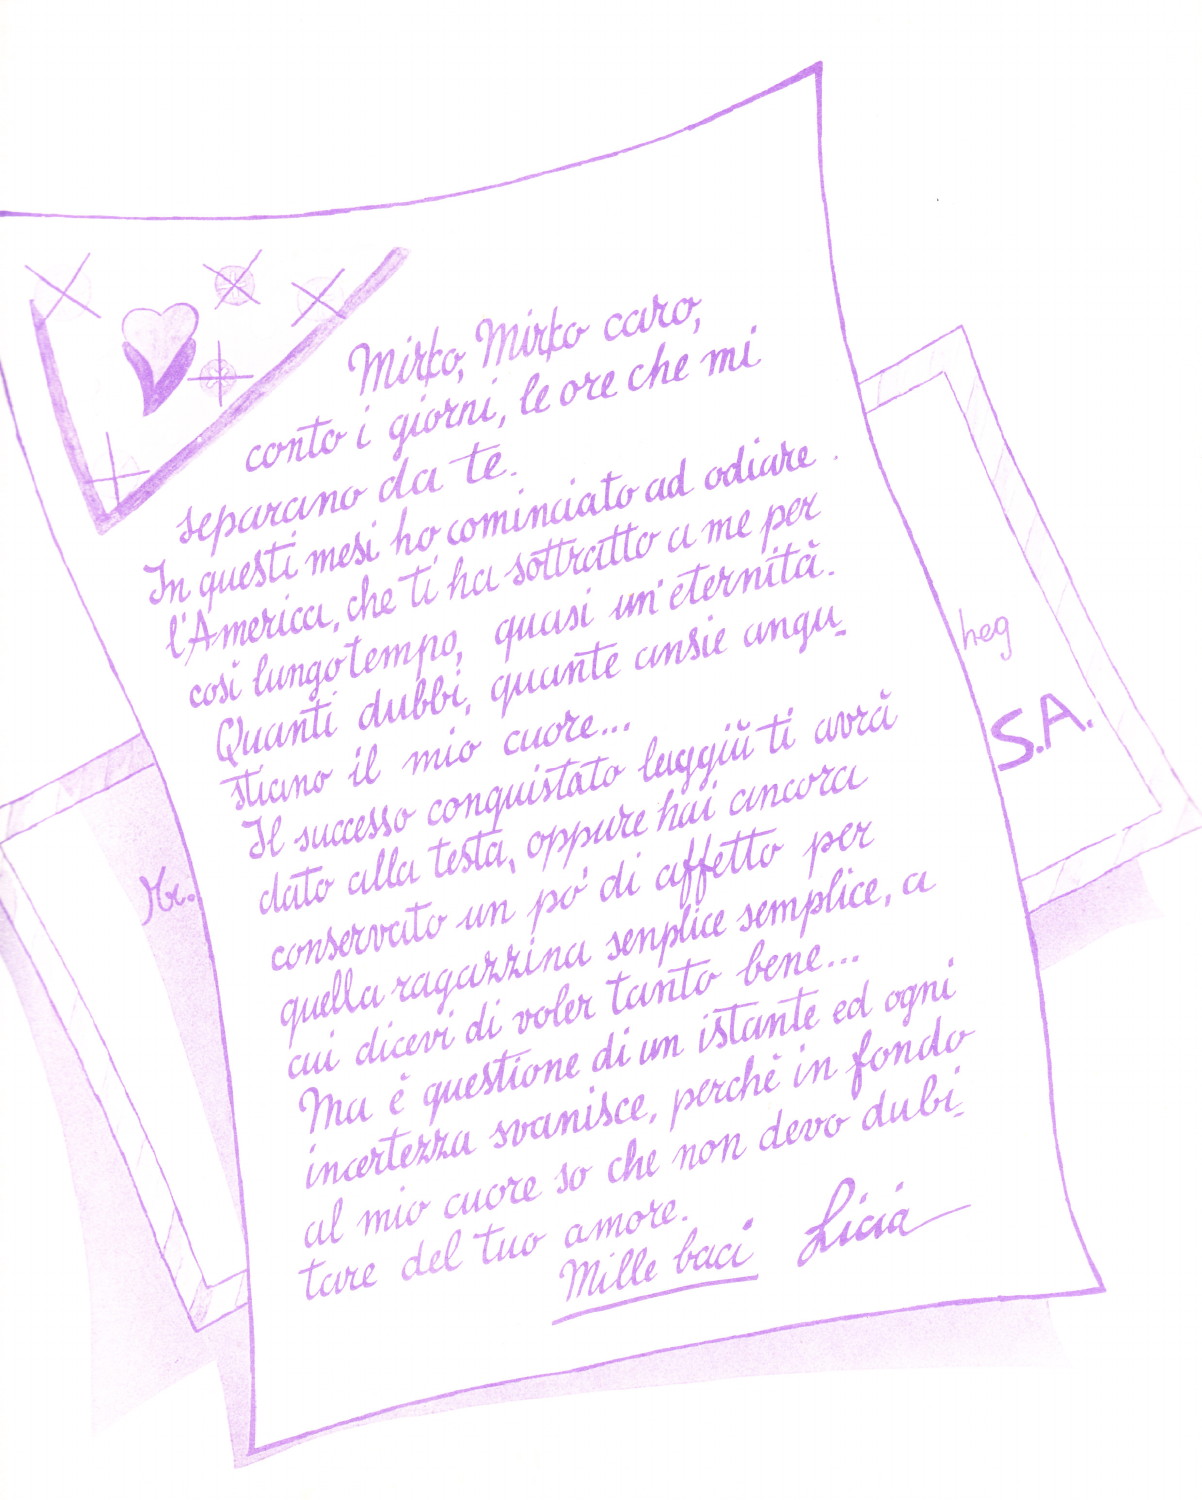 Mirko, Mirko caro,
conto i giorni, le ore che mi
separano da te.
In questi mesi ho cominciato ad odiare
l'America, che ti ha sottratto a me per
così lungo tempo, quasi un'eternità.
Quanti dubbi, quante ansie angu-
stiano il mio cuore...
Il successo conquistato laggiù ti avrà
dato alla testa, oppure hai ancora
conservato un pò di affetto per
quella ragazzina senplice semplice, a
cui dicevi di voler tanto bene...
Ma è questione di un istante ed ogni
incertezza svanisce, perchè in fondo
al mio cuore so che non devo dubi-
tare del tuo amore.
Mille baci Licia
Mr.
heg
S.A.